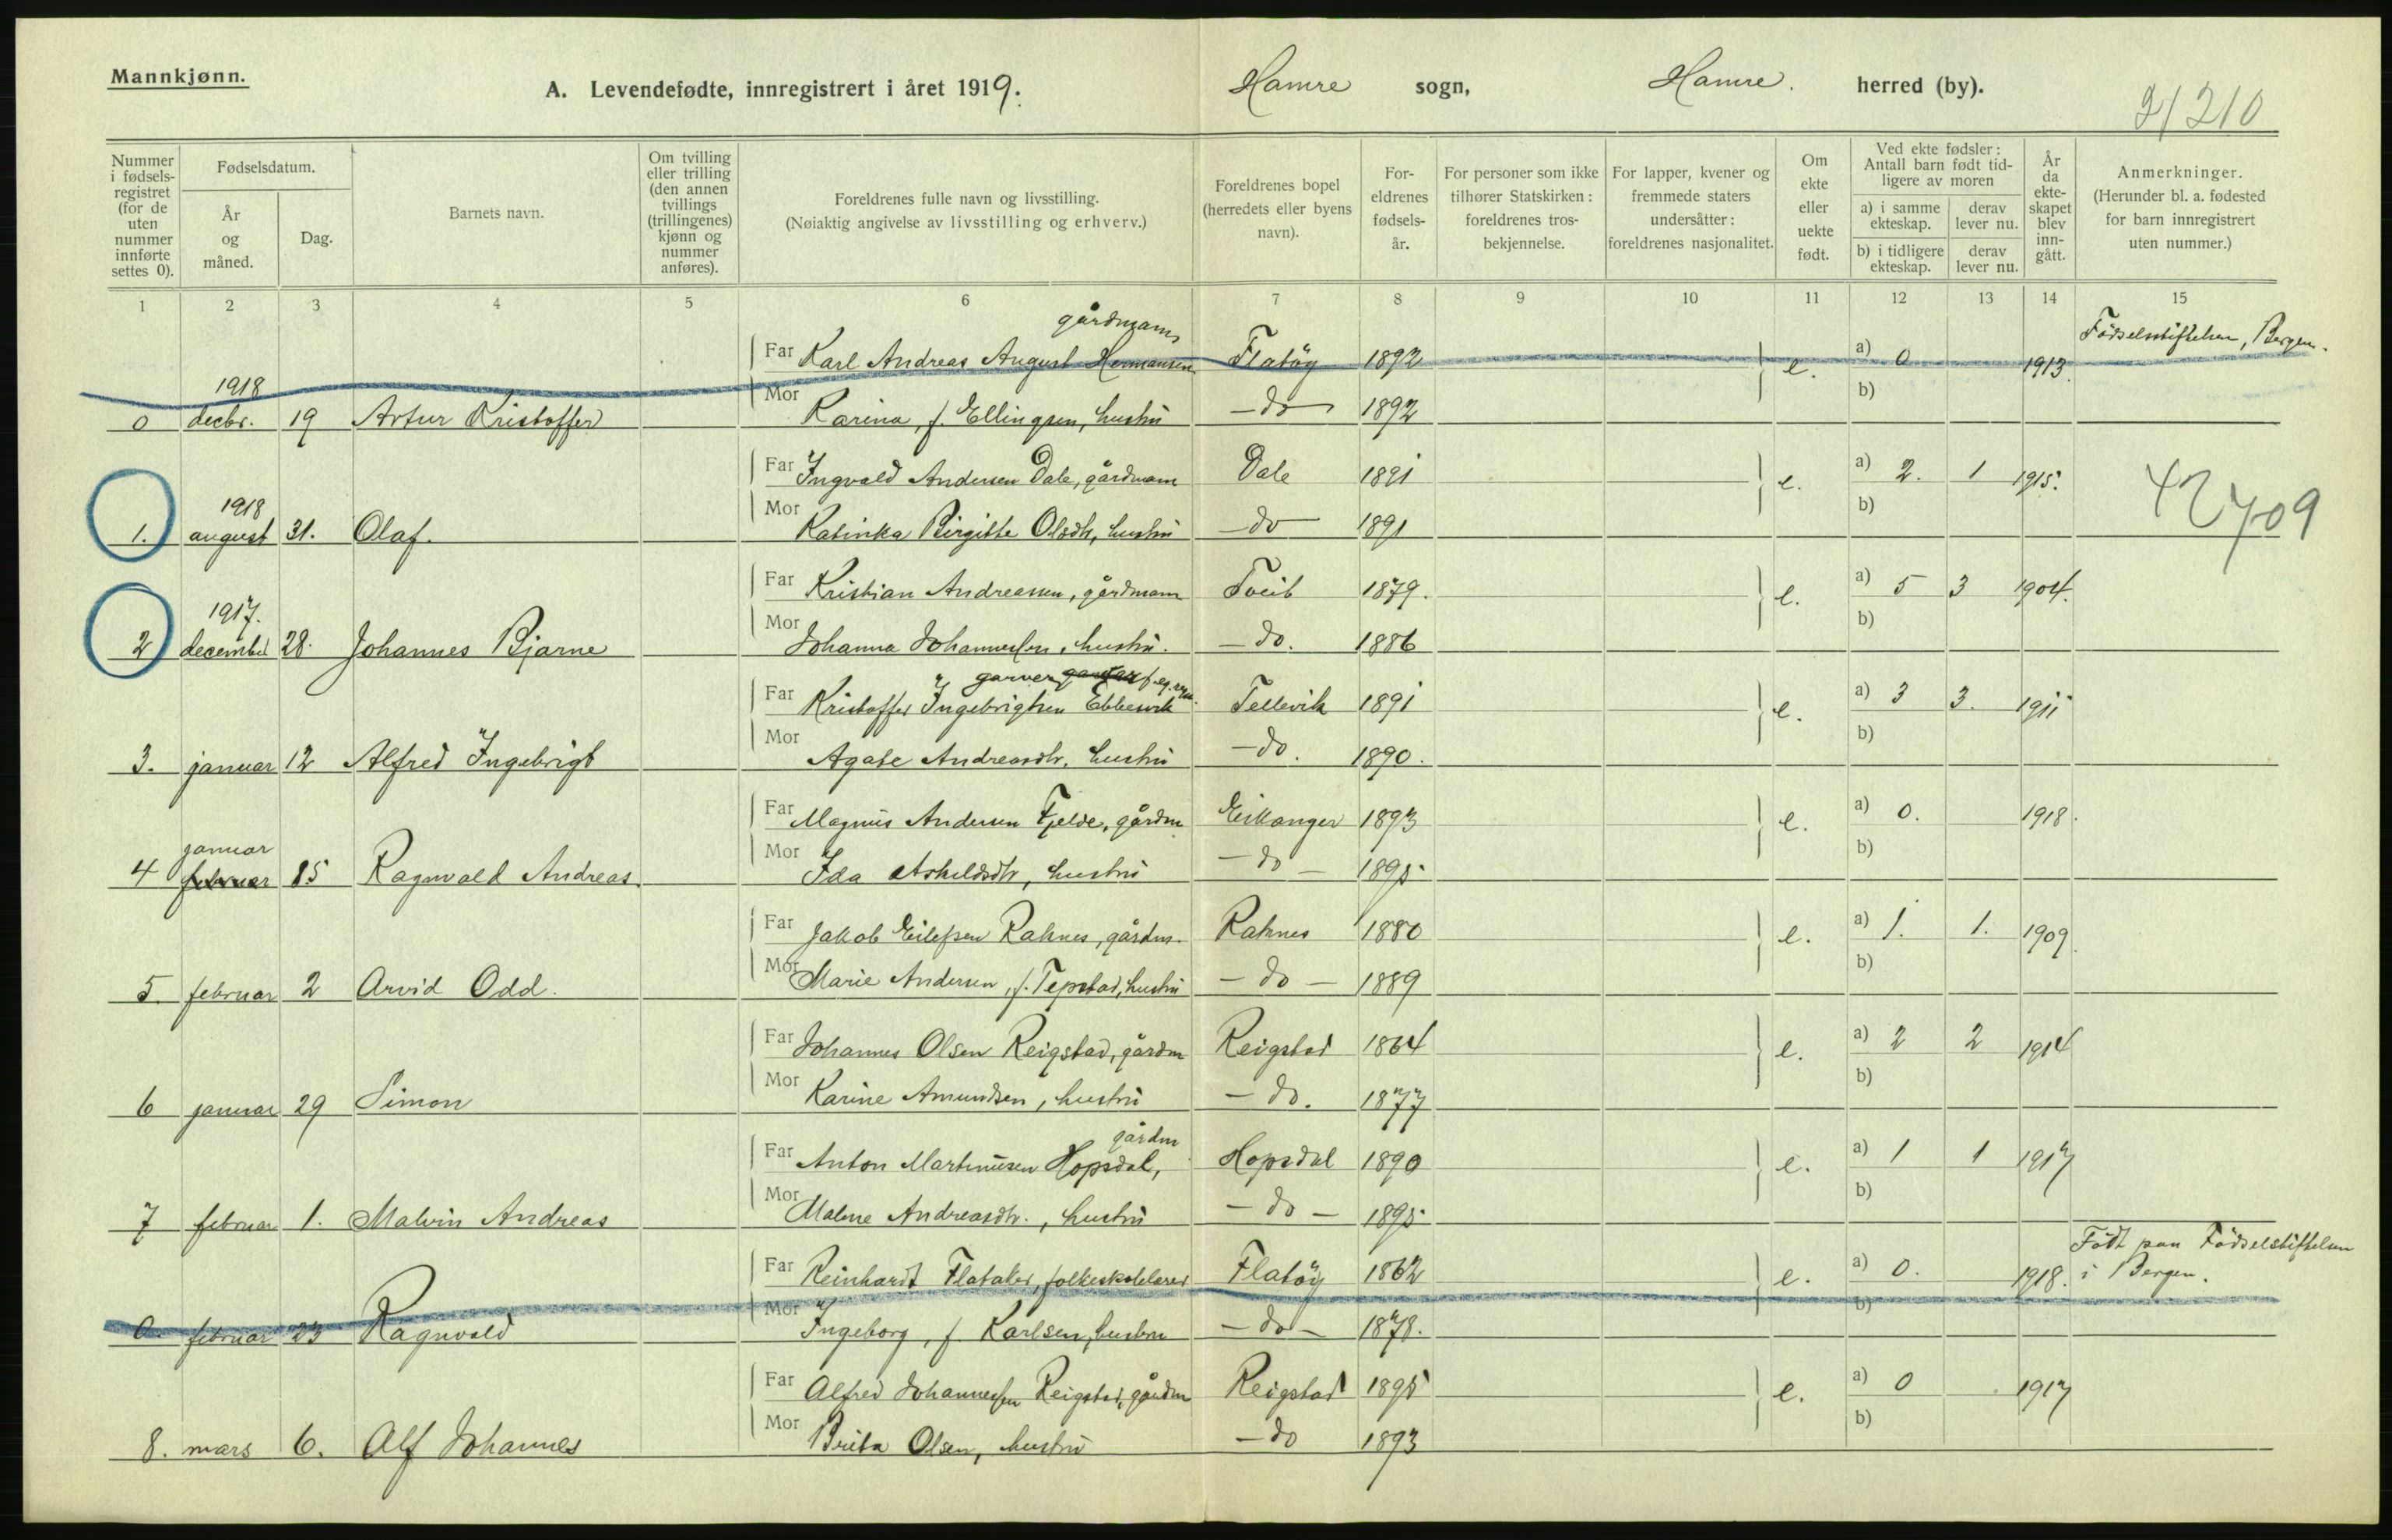 Mannkjønn.
A. Levendefødte, innregistrert i året 1919. Hamre sogn, Hamre. herred (by).
2/210
Nummer i fødsels-registret (for de uten nummer innførte settes 0).
Fødselsdatum.
År og måned.
Dag.
Barnets navn.
Om tvilling eller trilling (den annen tvillings (trillingenes) kjønn og nummer anføres).
Foreldrenes fulle navn og livsstilling.
(Nøiaktig angivelse av livsstilling og erhverv.)
Foreldrenes bopel (herredets eller byens navn).
For-eldrenes fødsels-år.
For personer som ikke tilhører Statskirken: foreldrenes tros-bekjennelse.
For lapper, kvener og fremmede staters undersåtter: foreldrenes nasjonalitet.
Om ekte eller uekte født.
Ved ekte fødsler: Antall barn født tid-ligere av moren
a) i samme ekteskap. derav lever nu.
b) i tidligere ekteskap. derav lever nu.
År da ekte-skapet blev inn-gått.
Anmerkninger.
(Herunder bl. a. fødested for barn innregistrert uten nummer.)
1 2 3 4 5 6 7 8 9 10 11 12 13 14 15
gårdmann
Far Karl Andreas August Hermansen Flatöy 1892 e. a) 0 1913. Födselsstiftelsen, Bergen.
1918
0 decbr. 19 Artur Kristoffer Mor Karina, f. Ellingsen, hustru -do- 1892 b)
Far Ingvald Andersen Dale, gårdmann Dale 1891 e. a) 2. 1 1915.
1918
1. august 31. Olaf. Mor Katinka Birgitte Olsdtr, hustru -do- 1891 b)
42709
Far Kristian Andreassen, gårdmann Tveit 1879. e. a) 5 3 1904.
1917.
2 december 28. Johannes Bjarne Mor Johanna Johannessen, hustru. -do. 1886 b)
garver
Far Kristoffer Ingebrigtsen Ebbesvik Tellevik 1891 e. a) 3 3. 1911
3. januar 12 Alfred Ingebrigt Mor Agate Andreasdtr, hustru -do. 1890. b)
Far Magnus Andersen Fjelde, gårdm Eikanger 1893 e. a) 0. 1918.
januar
4 februar 15 Ragnvald Andreas. Mor Ida Askeldsdtr, hustru -do- 1895. b)
Far Jakob Eilefsen Raknes, gårdm. Raknes 1880 e. a) 1. 1. 1909.
5. februar 2 Arvid Odd. Mor Marie Andersen, f. Tepstad, hustru -do- 1889 b)
Far Johannes Olsen Reigstad, gårdm Reigstad 1864 e. a) 2 2 1914
6 januar 29 Simon Mor Karine Amundsen, hustru -do. 1877 b)
gårdm
Far Anton Martinusen Hopsdal, Hopsdal 1890 e. a) 1 1 1917
7 februar 1. Malvin Andreas Mor Malene Andreasdtr., hustru -do- 1895. b)
Far Reinhardt Flataker, folkeskolelærer Flatöy 1862 e. a) 0. 1918. Födt paa Födselstiftelsen
i Bergen.
0 februar 23 Ragnvald Mor Ingeborg, f. Karlsen, hustru -do- 1878. b)
Far Alfred Johannessen Reigstad, gårdm Reigstad 1895 e. a) 0 1917
8. mars 6. Alf Johannes Mor Brita Olsen, hustru -do 1893 b)